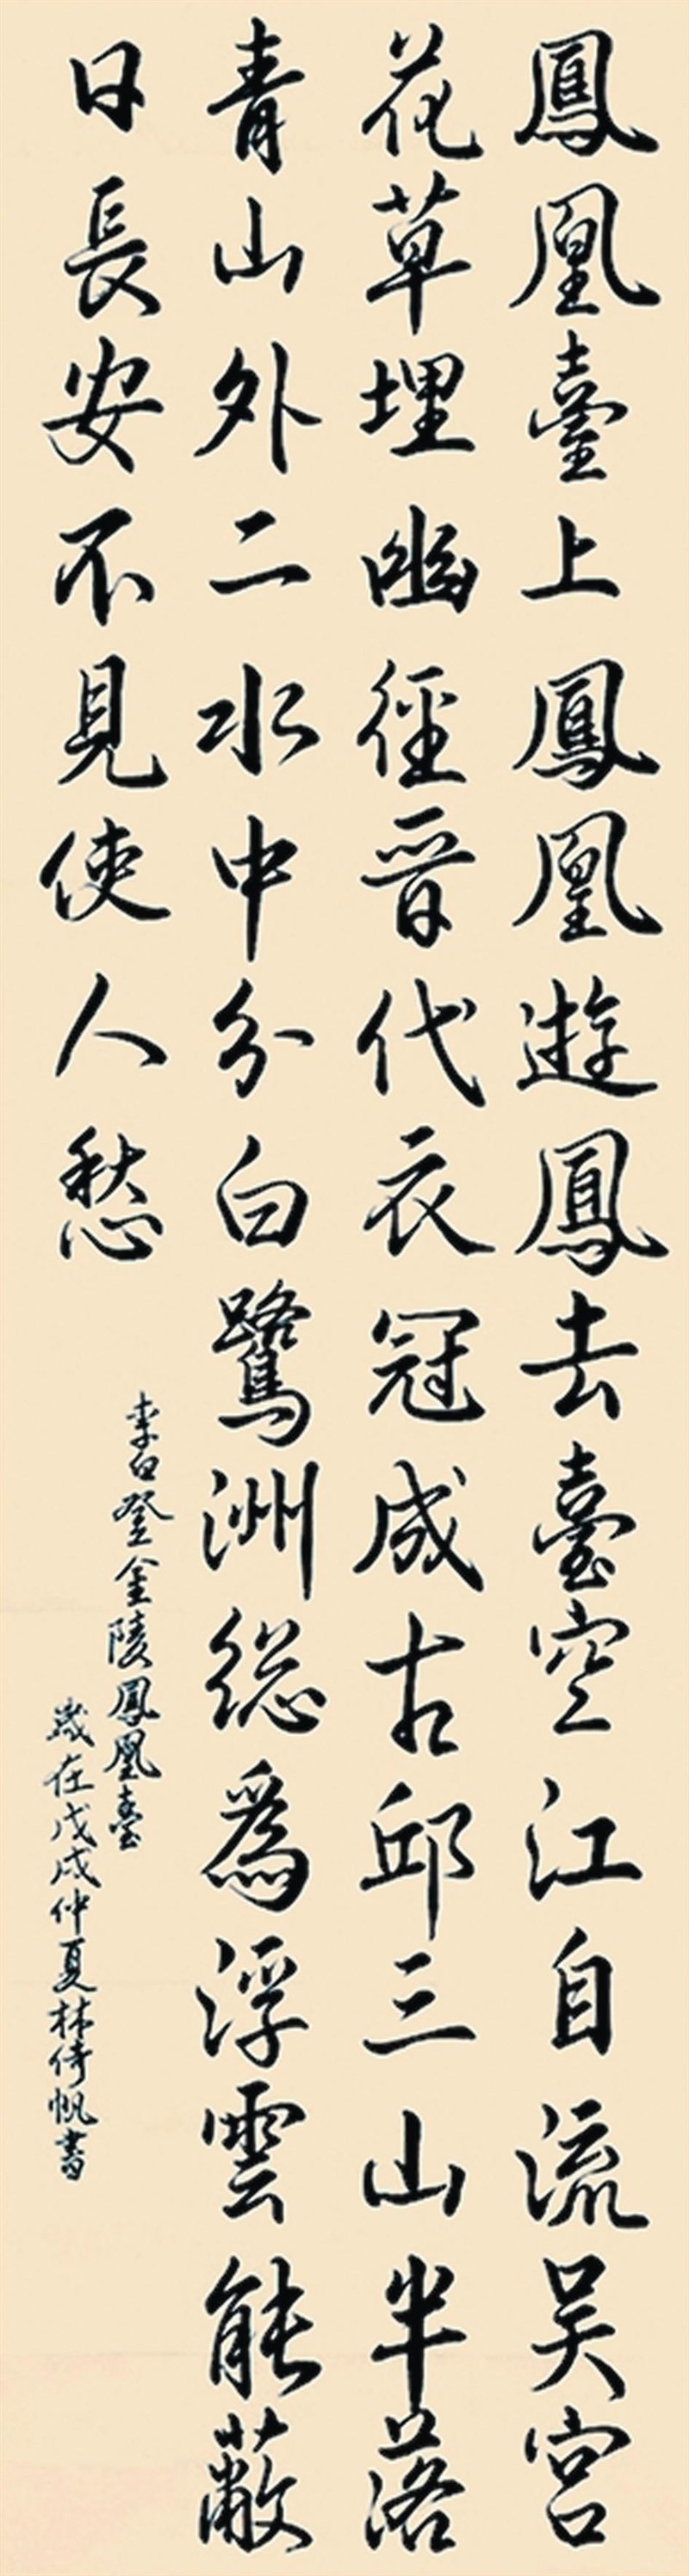 鳳凰臺上鳳凰遊鳳去臺空江自流吴宮
花草埋幽徑晋代衣冠成古邱三山半落
青山外二水中分白鷺洲総為浮雲能蔽
日長安不見使人愁
李白登金陵鳳凰臺
歳在戊戌仲夏林倚帆書